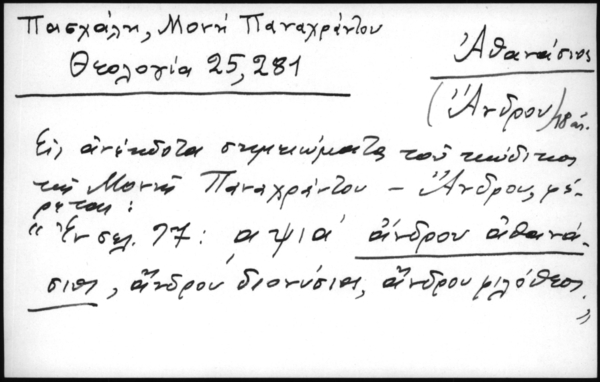 Πασχάλη, Μονή Παναχράντου
Θεολογία 25, 281
Ἀθανάσιος
(Ἄνδρου) 18 αἰ.
Εἰς ἀνέκδοτα σημειώματα τοῦ κώδικος
τῆς Μονῆς Παναχράντου – Ἄνδρου, φέ-
ρεται:
"Ἐν σελ. 77: αψια' ἄνδρου ἀθανά-
σιος, ἄνδρου διονύσιος, ἄνδρου φιλόθεος."